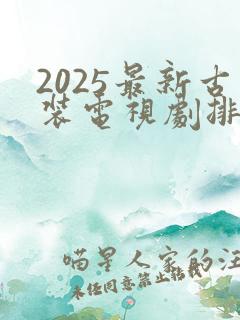 2025最新古
裝電視劇排
喵星人家的汪
未任同意禁止轉載